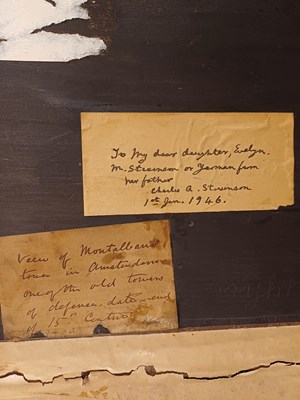 To My dear daughter, Evelyn.
M. Stevenson or Yarman from
her father
Charles A. Stevenson
1st Jan. 1946.
View of Montalbans
tower in Amsterdam
one of the old towers
of defense, date end
of 15th Century